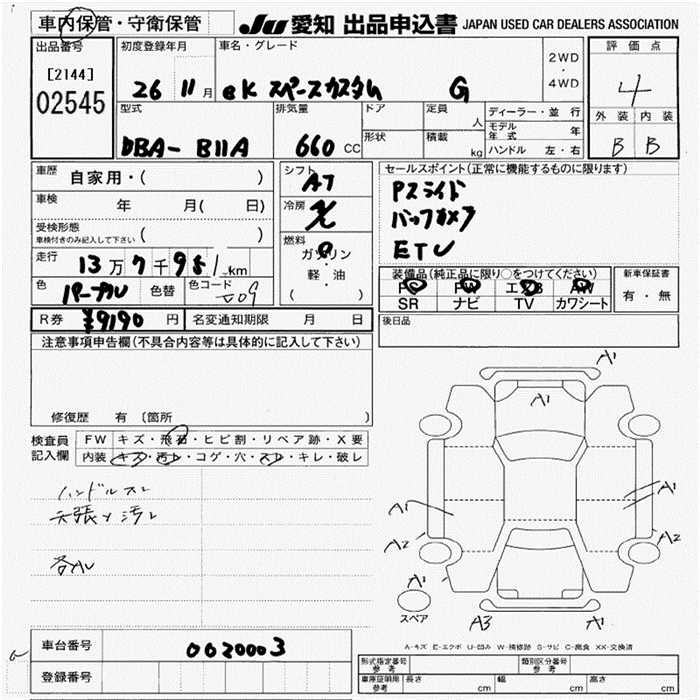 車内保管・守衛保管 JU 愛知 出品申込書 JAPAN USED CAR DEALERS ASSOCIATION
出品番号 [2144] 02545
初度登録年月 26 11月
車名・グレード eK スペースカスタム G
2WD・4WD
評価点 4
外装 内装
B B
型式 DBA- B11A
排気量 660 CC
ドア 形状
定員 人 積載 kg
ディーラー・並行
モデル年式 年
ハンドル 左・右
車歴 自家用・( )
車検 年 月( 日)
受検形態 車検付きのみ記入して下さい ( )
走行 13万7千9 km
色 パープル 色替 色コード
シフト AT
冷房
燃料 ガソリン・軽油 ( )
セールスポイント(正常に機能するものに限ります)
Pスライド
バックカメラ
ETC
装備品(純正品に限り○をつけてください)
PS PW エアB AW
SR ナビ TV カワシート
新車保証書 有・無
後日品
R券 ¥9190 円 名変通知期限 月 日
注意事項申告欄(不具合内容等は具体的に記入して下さい)
修復歴 有 〔箇所
検査員記入欄
FW キズ・飛石・ヒビ割・リペア跡・X要
内装 キズ・汚レ・コゲ・穴・スレ・キレ・破レ
ハンドルスレ
天張り汚レ
各AU
A1
A1
A1
A1
A2
A1
A2
A1
A3
A1
スペア
A-キズ E-エクボ U-凹み W-補修跡 S-サビ C-腐食 XX-交換済
車台番号 0020003
登録番号
型式指定番号 参考 類別区分番号 参考
車庫証明用 参考 長さ cm 幅 cm 高さ cm